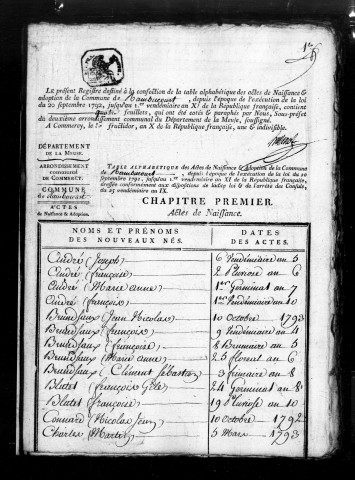 Le présent Registre destiné à la confection de la table alphabétique des actes de Naissance &
adoption de la Commune de Naubécourt, depuis l'époque de l'exécution de la loi
du 20 septembre 1792, jusqu'au 1.er vendémiaire an XI de la République française, contient
feuillets, qui ont été cotés & paraphés par Nous, Sous-préfet
du deuxième arrondissement communal du Département de la Meuse, soussigné.
A Commercy, le fructidor, an X de la République française, une & indivisible.
DÉPARTEMENT
DE LA MEUSE.
ARRONDISSEMENT
communal
DE COMMERCY.
COMMUNE
ACTES
de Naissance & Adoption.
TABLE ALPHABÉTIQUE des Actes de Naissance & Adoption de la Commune
de, depuis l'époque de l'exécution de la loi du 20
septembre 1792, jusqu'au 1.er vendémiaire an XI de la République française,
dressée conformément aux dispositions de ladite loi & de l'arrêté des Consuls,
du 25 vendémiaire an IX.
CHAPITRE PREMIER.
Actes de Naissance.
NOMS ET PRÉNOMS
DES NOUVEAUX NÉS.
DATES
DES ACTES.
André (Joseph) 6 Vendémiaire an 5
André (françoise) 2 Pluviose an 6
André (Marie anne) 1er Germinal an 7
André (françois) 1er Vendémiaire an 10
Brunessaux (Jean Nicolas) 10 Octobre 1793
Brunessaux (françois) 9 Vendémiaire an 4
Brunessaux (françoise) 8 Brumaire an 5
Brunessaux (Marie anne) 25 floreal an 6
Brunessaux (Clément Sebastien) 3 frimaire an 8
Blatet (françois) 24 Germinal an 8
Blatet (françoise) 19 Pluviose an 10
(Nicolas) 10 Octobre 1792
Charles (Martin) 5 Mars 1793